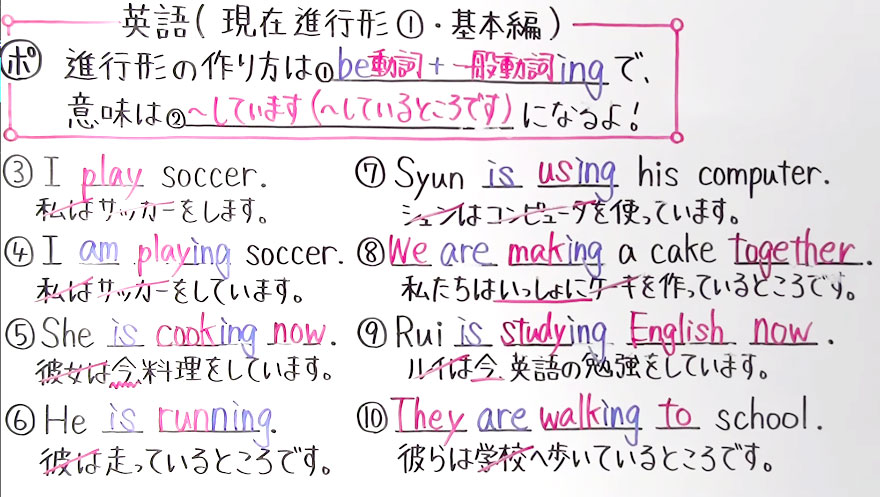 英語(現在進行形①・基本編)
ポ 進行形の作り方は①be動詞+一般動詞ingで、
意味は②〜しています(〜しているところです)になるよ!
③I play soccer.
私はサッカーをします。
④I am playing soccer.
私はサッカーをしています。
⑤She is cooking now.
彼女は今、料理をしています。
⑥He is running.
彼は走っているところです。
⑦Syun is using his computer.
シュンはコンピュータを使っています。
⑧We are making a cake together.
私たちはいっしょにケーキを作っているところです。
⑨Rui is studying English now.
ルイは今、英語の勉強をしています。
⑩They are walking to school.
彼らは学校へ歩いているところです。